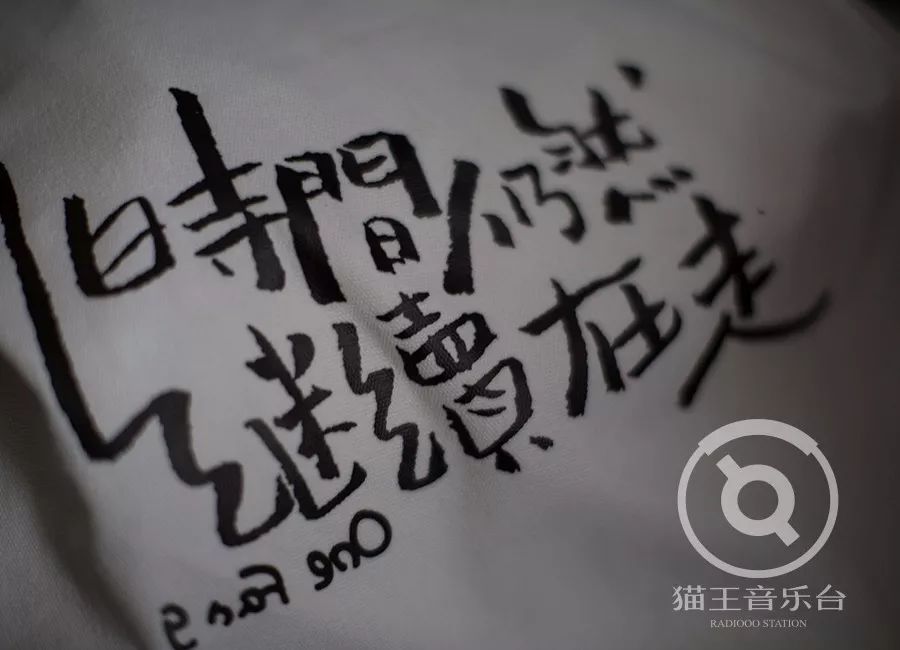 時間仍然
继續在走
One Fang
猫王音乐台
RADIOOO STATION